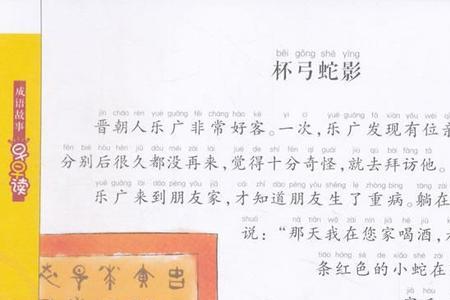 bēi gōng shé yǐng
杯弓蛇影
jìn cháo rén yuè guǎng fēi cháng hào kè yí cì yuè guǎng fā xiàn yǒu wèi
晋朝人乐广非常好客。一次，乐广发现有位
fēn bié hòu hěn jiǔ dōu méi zài lái jué de shí fēn qí guài jiù qù bài fǎng tā
分别后很久都没再来，觉得十分奇怪，就去拜访他。
yuè guǎng lái dào péng yǒu jiā cái zhī dào péng yǒu shēng le zhòng bìng tǎng zài
乐广来到朋友家，才知道朋友生了重病。躺在
shuō nà tiān wǒ zài nín jiā hē jiǔ
说：“那天我在您家喝酒，
tiáo hóng sè de xiǎo shé zài
条红色的小蛇在
成语故事
早早读